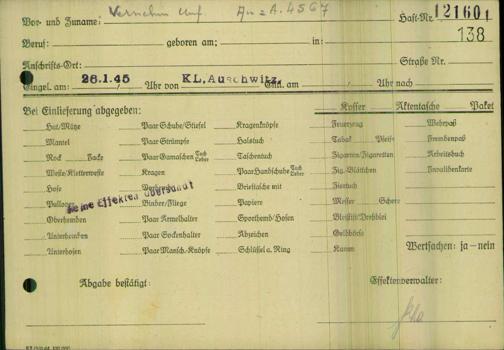 Vor- und Zuname: Au = A.4567 Haft-Nr. 121601
138
Beruf: geboren am: in:
Anschrifts-Ort: Straße Nr.
Eingel. am: 26.1.45 Uhr von KL, Auschwitz, Entl. am: Uhr nach
Bei Einlieferung abgegeben: Koffer Aktentasche Paket
Hut/Mütze Paar Schuhe/Stiefel Kragenknöpfe Feuerzeug Wehrpaß
Mantel Paar Strümpfe Halstuch Tabak Pfeife Fremdenpaß
Rock Jacke Paar Gamaschen Tuch Leder Taschentuch Zigarren/Zigaretten Arbeitsbuch
Weste/Kletterweste Kragen Paar Handschuhe Tuch Leder Zig.-Blättchen Invalidenkarte
Hose Brieftasche mit
Pullover Binder/Fliege Papiere Messer Schere
Keine Effekten übersandt
Oberhemden Paar Ärmelhalter Sporthemd/Hosen Bleistift/Drehblei
Unterhemden Paar Sockenhalter Abzeichen Geldbörse
Wertsachen: ja – nein
Unterhosen Paar Mansch.-Knöpfe Schlüssel a. Ring Kamm
Abgabe bestätigt: Effektenverwalter: